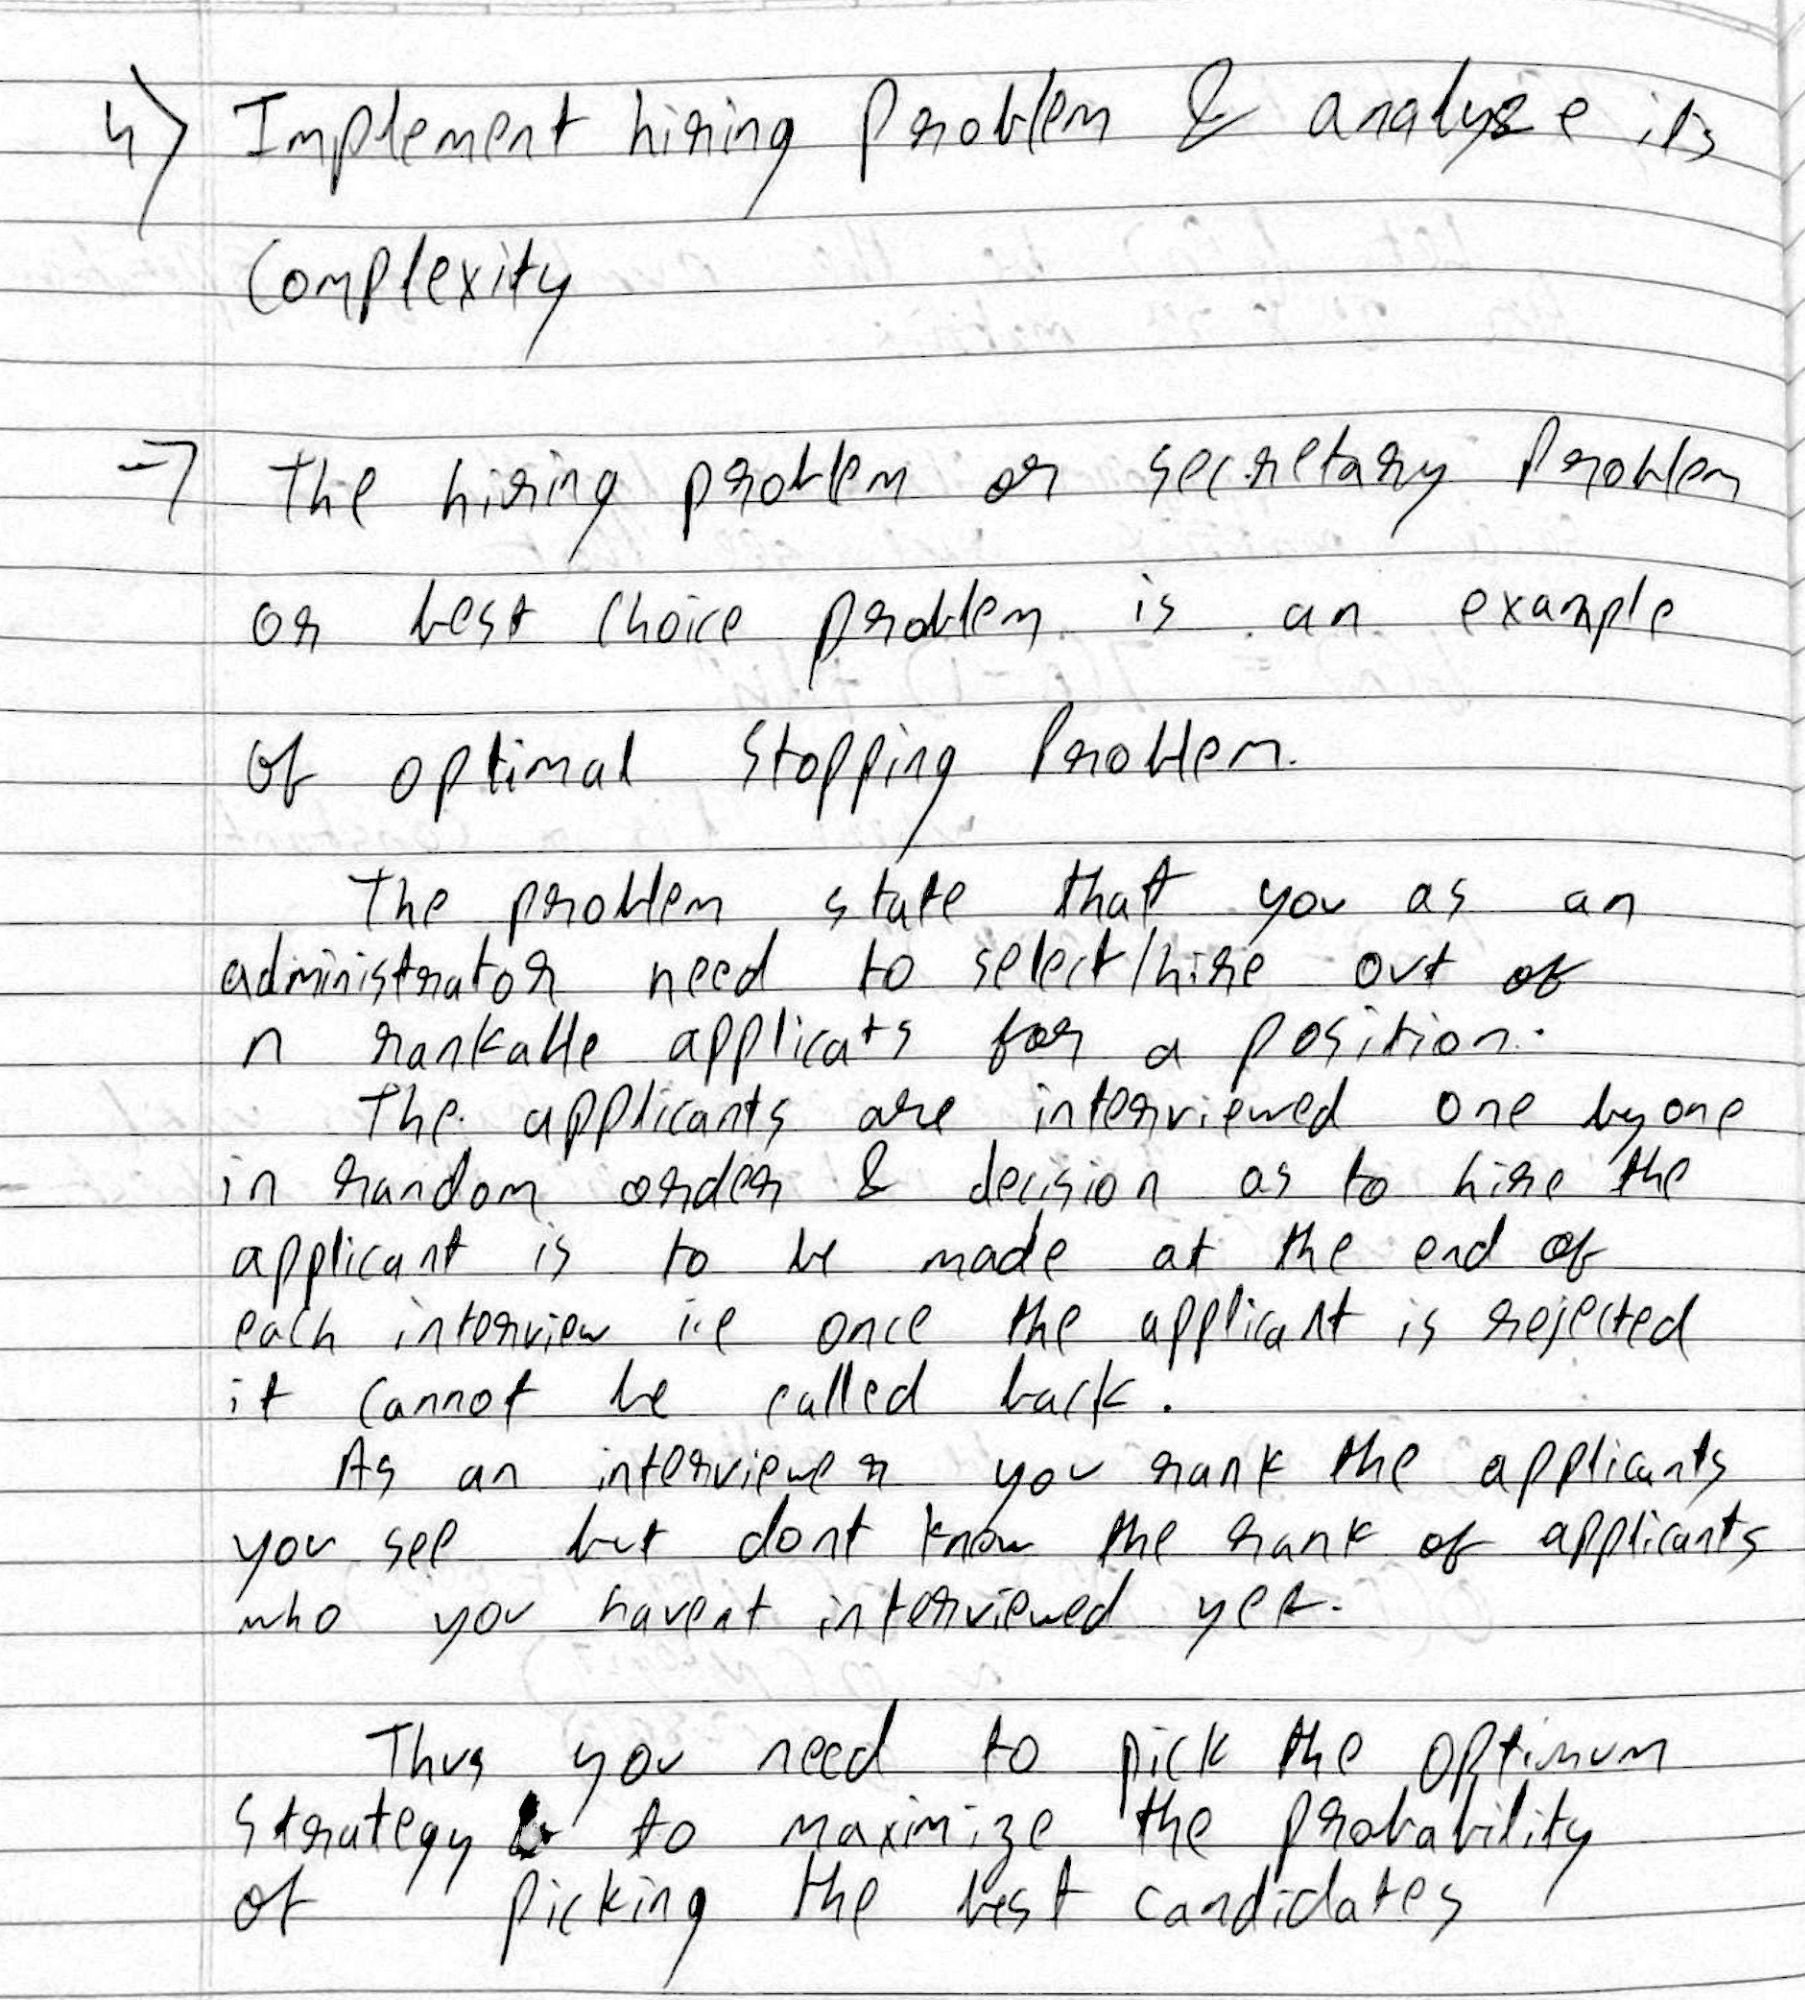 4) Implement hiring Problem & analyze its
Complexity
→ The hiring problem or secretary Problem
or best choice problem is an example
of optimal Stopping Problem.
The problem state that you as an
administrator need to select/hire out of
n rankable applicats for a position.
The applicants are interviewed one by one
in random order & decision as to hire the
applicant is to be made at the end of
each interview i.e once the applicant is rejected
it cannot be called back.
As an interviewer you rank the applicants
you see but dont know the rank of applicants
who you havent interviewed yet.
Thus you need to pick the optimum
Strategy to maximize the probability
of picking the best candidates